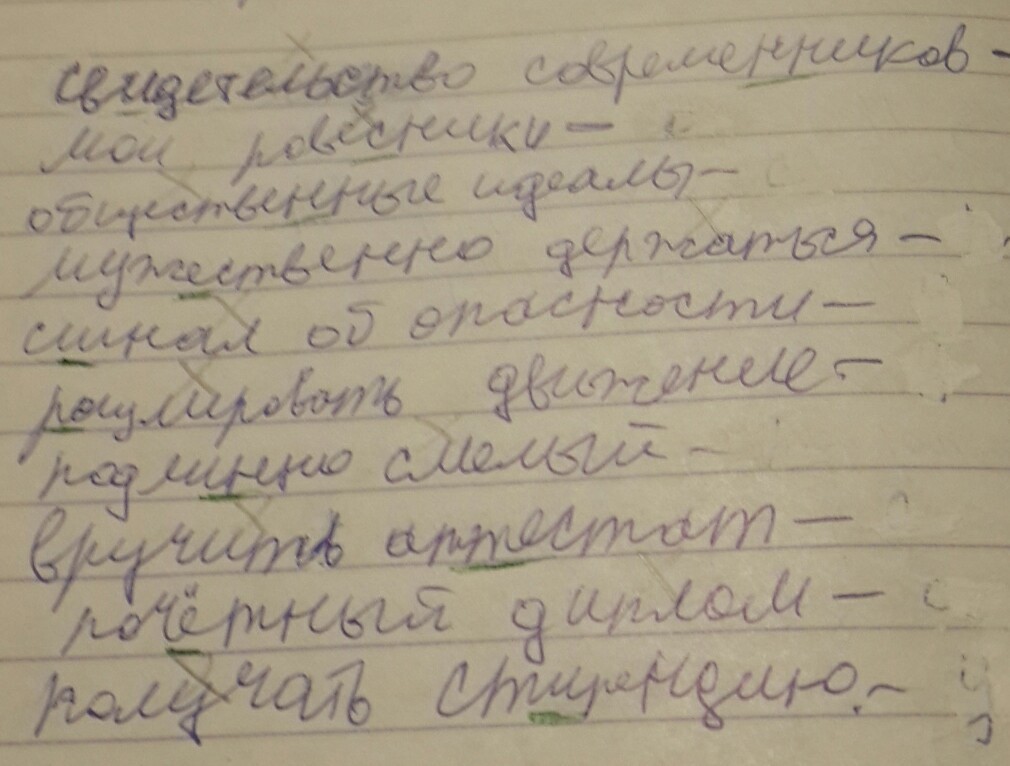 свидетельство современников -
мои ровесники -
общественные идеалы -
мужественно держаться -
сигнал об опасности -
регулировать движение -
подлинно смелый -
вручить аттестат -
почётный диплом -
получать стипендию. -